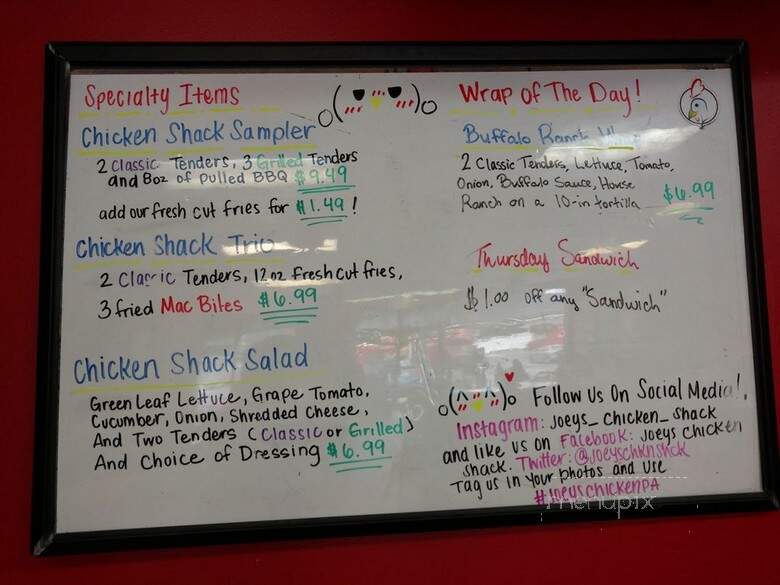 Specialty Items
Chicken Shack Sampler
2 Classic Tenders, 3 Grilled Tenders
and 8oz of Pulled BBQ $9.49
add our fresh cut fries for $1.49!
Chicken Shack Trio
2 Classic Tenders, 12oz Fresh cut fries,
3 fried Mac Bites $6.99
Chicken Shack Salad
Green Leaf Lettuce, Grape Tomato,
Cucumber, Onion, Shredded Cheese,
And Two Tenders (Classic or Grilled)
And Choice of Dressing $6.99
Wrap of The Day!
Buffalo Ranch
2 Classic Tenders, Lettuce, Tomato,
Onion, Buffalo Sauce, House
Ranch on a 10-in tortilla $6.99
Thursday Sandwich
$1.00 off any "Sandwich"
Follow Us On Social Media!
Instagram: joeys_chicken_shack
and like us on Facebook: joeys chicken
shack. Twitter: @joeyschknshck
Tag us in your photos and use
#joeyschickenPA
menupix